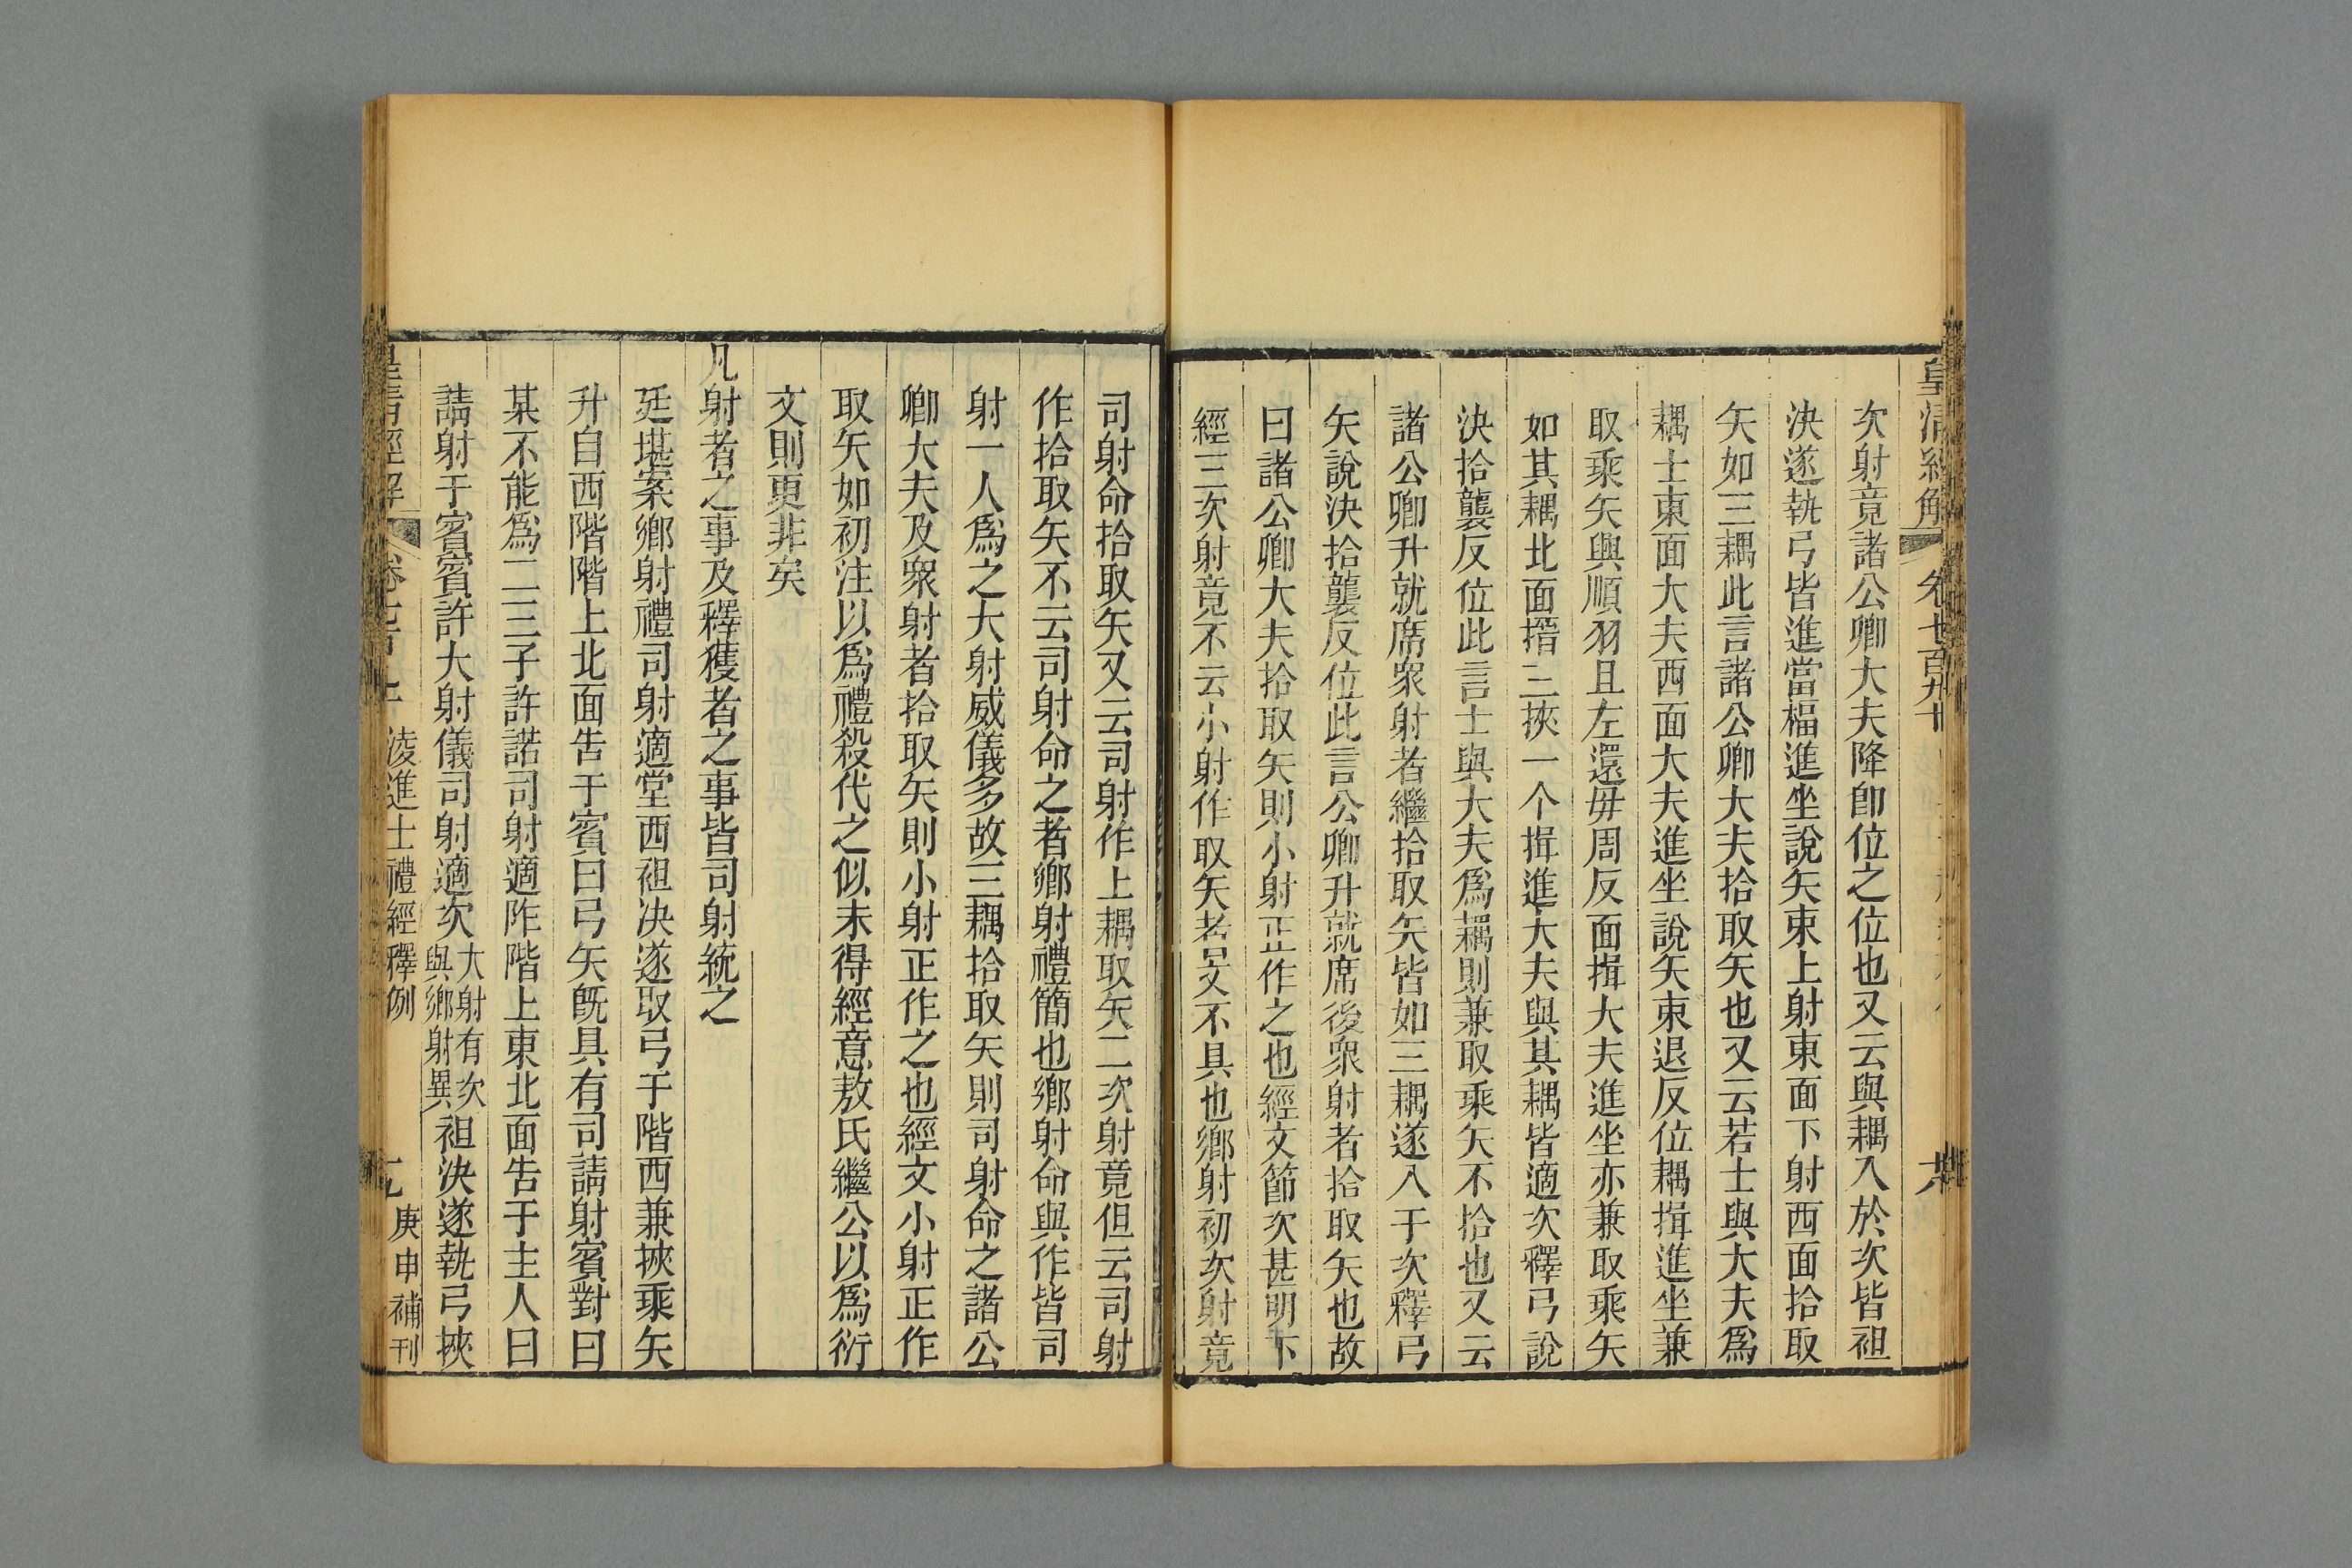 皇清經解 卷七百九十
六
次射竟諸公卿大夫降卽位之位也又云與耦入於次皆袒
決遂執弓皆進當楅進坐說矢束上射東面下射西面拾取
矢如三耦此言諸公卿大夫拾取矢也又云若士與大夫爲
耦士東面大夫西面大夫進坐說矢束退反位耦揖進坐兼
取乘矢與順羽且左還毋周反面揖大夫進坐亦兼取乘矢
如其耦北面搢三挾一个揖進大夫與其耦皆適次釋弓說
決拾襲反位此言士與大夫爲耦則兼取乘矢不拾也又云
諸公卿升就席眾射者繼拾取矢皆如三耦遂入于次釋弓
矢說決拾襲反位此言公卿升就席後眾射者拾取矢也故
曰諸公卿大夫拾取矢則小射正作之也經文節次甚明下
經三次射竟不云小射作取矢者文不具也鄉射初次射竟
司射命拾取矢又云司射作上耦取矢二次射竟但云司射
作拾取矢不云司射命之者鄉射禮簡也鄉射命與作皆司
射一人爲之大射威儀多故三耦拾取矢則司射命之諸公
卿大夫及眾射者拾取矢則小射正作之也經文小射正作
取矢如初注以爲禮殺代之似未得經意敖氏繼公以爲衍
文則更非矣
凡射者之事及釋獲者之事皆司射統之
廷堪案鄉射禮司射適堂西袒決遂取弓于階西兼挾乘矢
升自西階階上北面告于賓曰弓矢旣具有司請射賓對曰
某不能爲二三子許諾司射適阼階上東北面告于主人曰
請射于賓賓許大射儀司射適次大射有次與鄉射異袒決遂執弓挾
皇清經解 卷七百 凌進士禮經釋例
庚申補刊